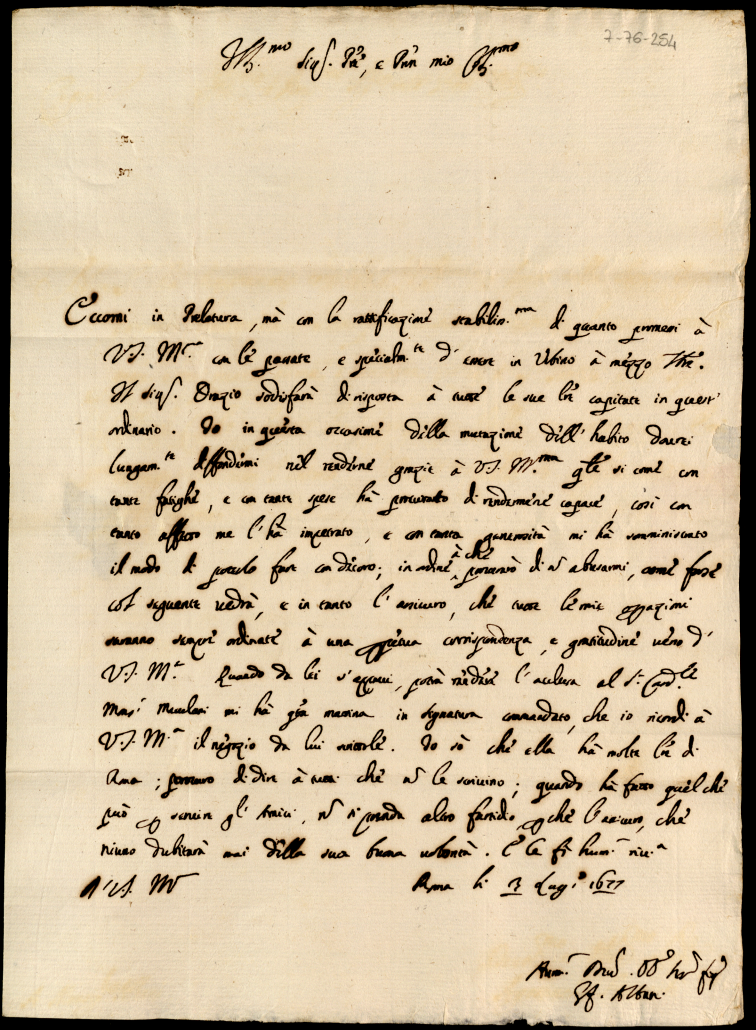 7-76-254
Ill.mo Sig.r P.re, e Pron mio Col.mo
Eccomi in Prelatura, mà con la rattificazione stabiliss.ma di quanto promessi à
V.S. Ill.ma con le passate, e specialm.te d'essere in Urbino à mezzo 7bre.
Il Sig.r Orazio sodisfarà di risposta à tutte le sue lre capitate in quest'
ordinario. Io in questa occasione della mutazione dell'habito dovrei
lungam.te diffondermi nel renderne grazie à V.S. Ill.ma q.le si come con
tante fatighe, e con tante spese hà procurato di rendermene capace, così con
tanto affetto me l'hà impetrato, e con tanta generosità mi hà somministrato
il modo di poterlo fare con decoro; in ordine à che procurarò di n abusarmi, come forse
col seguente vedrà, e in tanto l'assicuro, che tutte le mie operazioni
saranno sempre ordinate à una perpetua corrispondenza, e gratitudine verso d'
V.S. Ill.ma Quando da lei s'approvi, potrà l'acclusa al S.r Card.le
Mons.r mi hà questa mattina in Segnatura commandato, che io ricordi à
V.S. Ill.ma il negozio da lui scrittole. Io sò che ella hà molte lre di
Roma; procuro di dire à tutti che n le scrivino; quando hà fatto quel che
può per servire gl'Amici, n si prenda altro fastidio, perche l'assicuro, che
niuno dubitarà mai della sua buona volontà. E le fò hum.a riv.a
D V.S. Ill.ma Roma li 3 Lug.o 1677
Hum.o Dev.o Obb.o
Albani